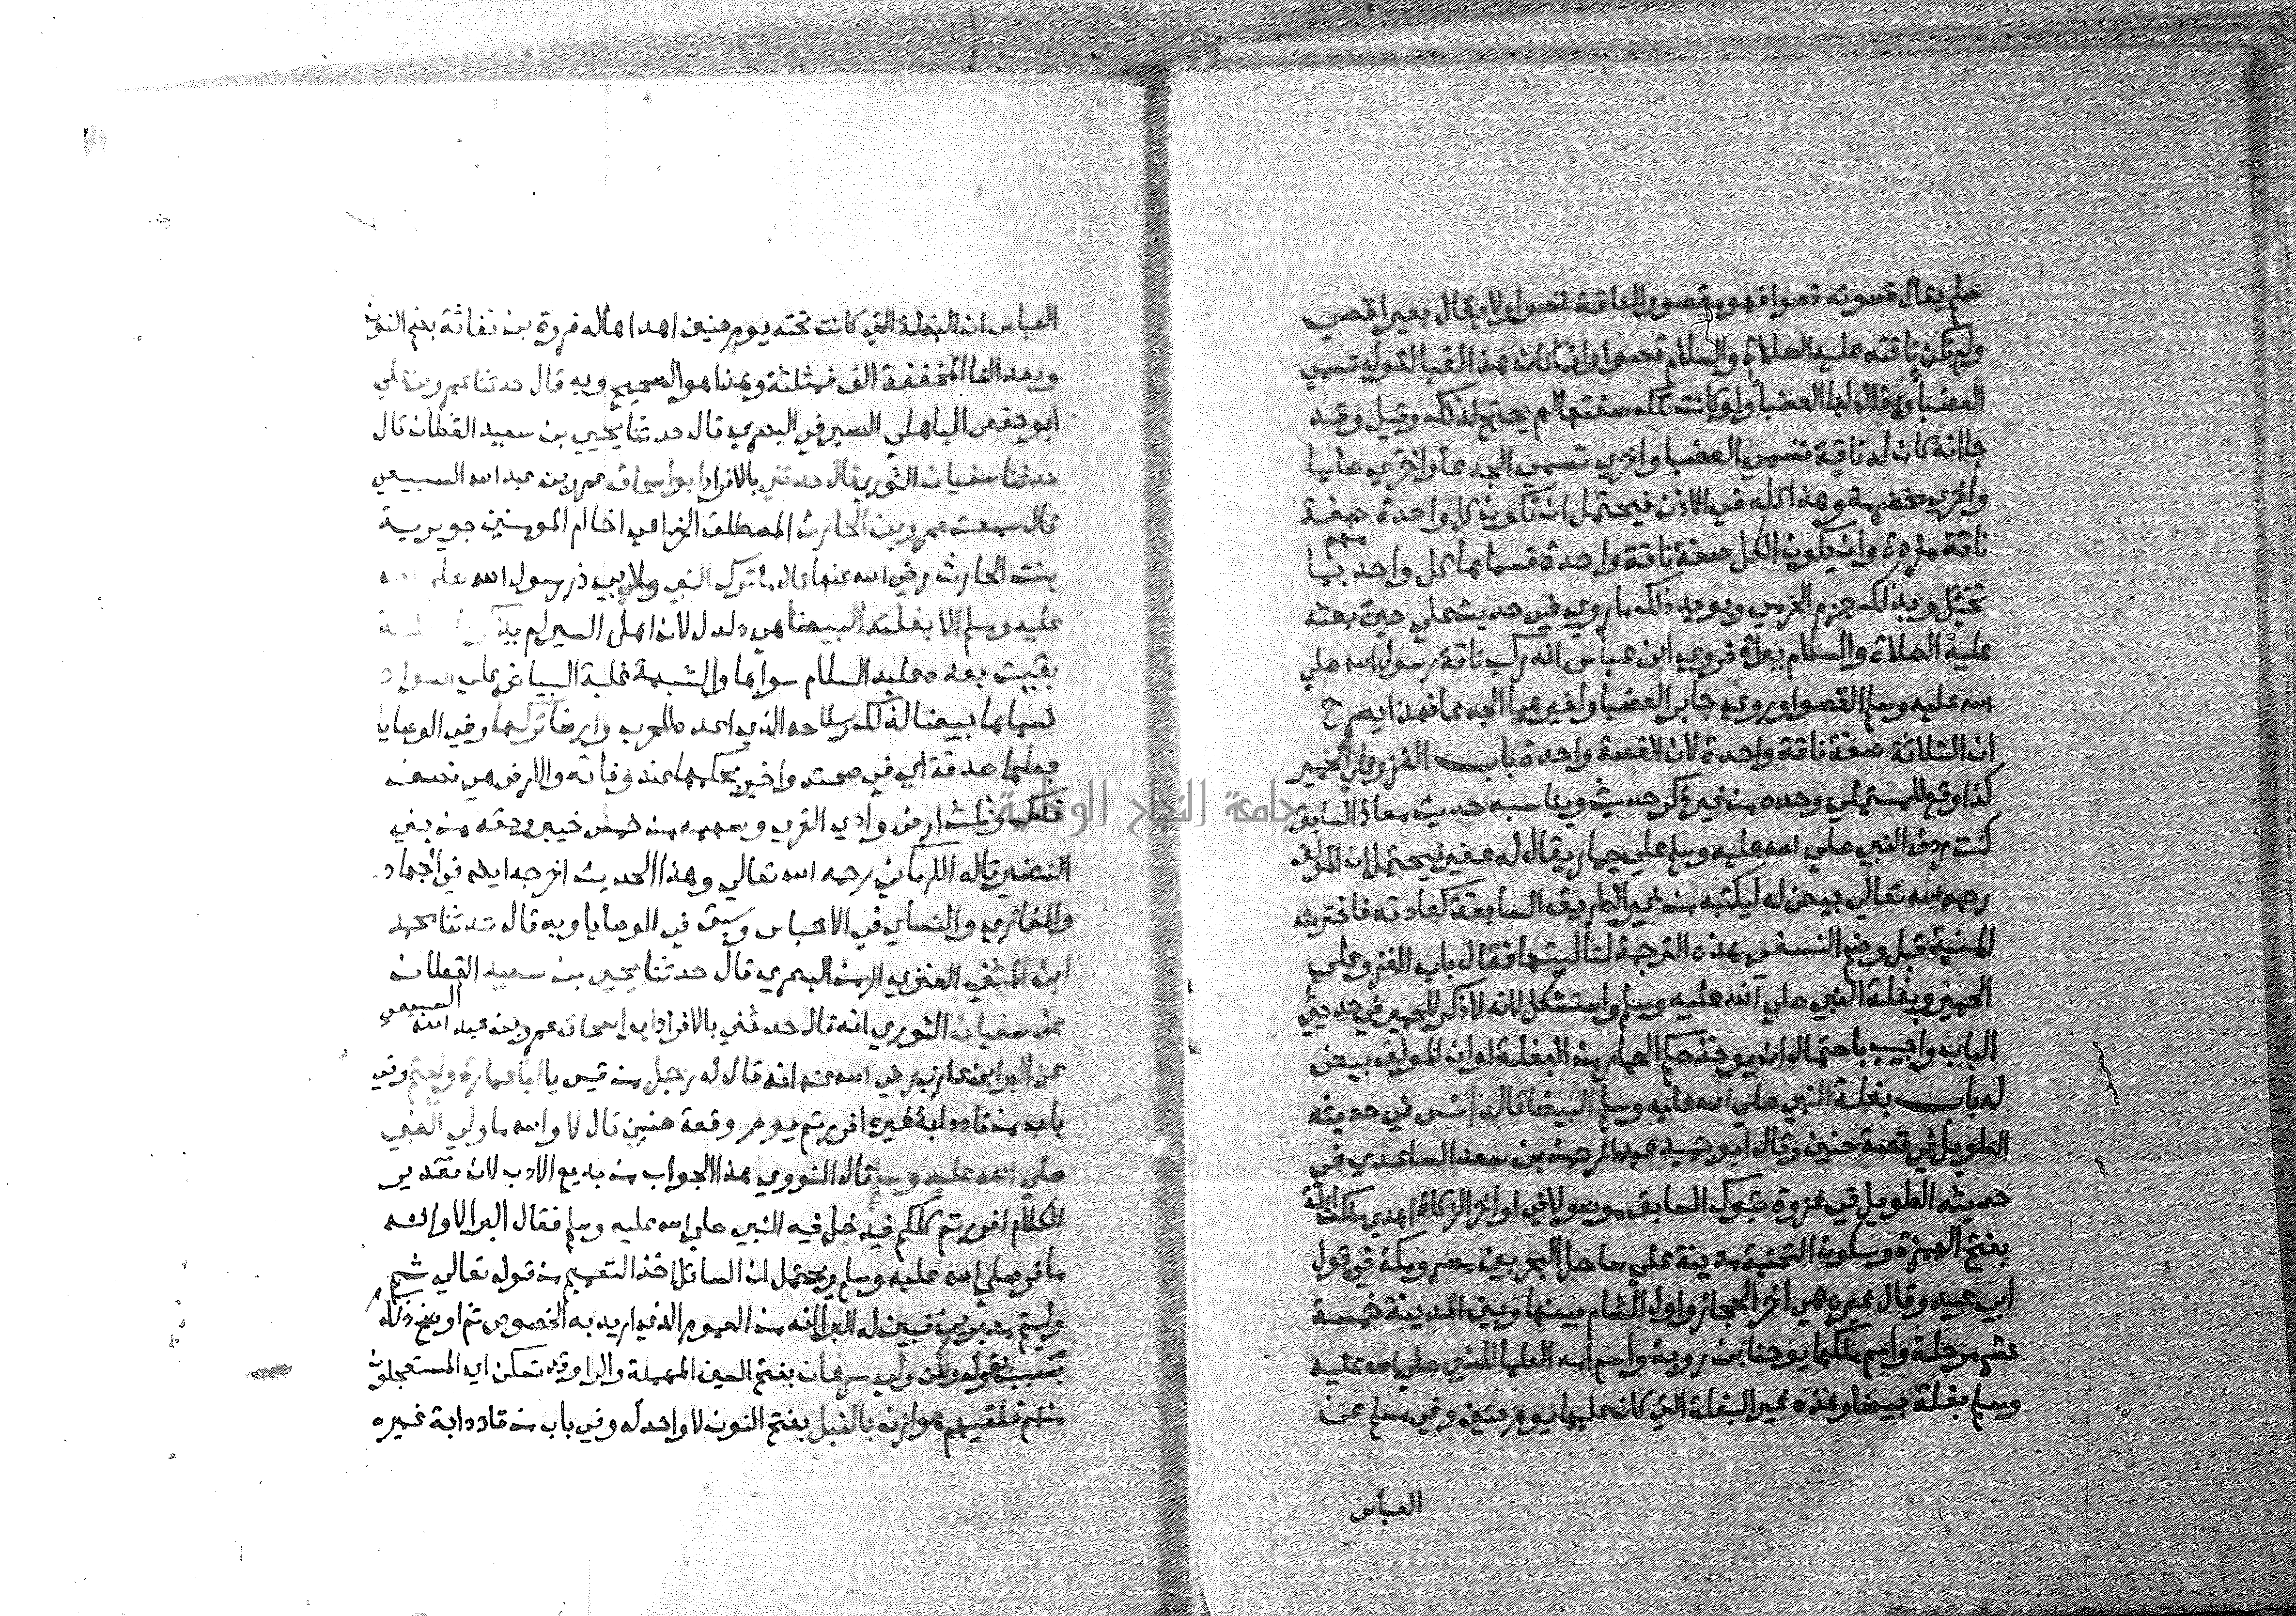 صلم يقال قصوته قصوا فهو مقصو والناقة قصوا ولا يقال بعير اقصي
ولم تكن ناقته عليه الصلاة والسلام قصوا وانما كان هذا لقبا لقوله تسمي
العضبا ويقال لها العضبا ولو كانت تلك صفتها لم يحتج لذلك وقيل وقد
جا انه كان له ناقة تسمي العضبا واخري تسمي الجدعا واخري صلما
واخري مخضرمة وهذا كله في الاذن فيحتمل ان تكون كل واحدة صفة
ناقة مفردة وان يكون الكل صفة ناقة واحدة فسماها كل واحد منهم بما
تخيل وبذلك جزم الحربي ويويد ذلك ما روي في حديث علي حين بعثه
عليه الصلاة والسلام ببراة فروي ابن عباس انه ركب ناقة رسول الله صلي
الله عليه وسلم القصوا وروي جابر العضبا ولغيرهما الجدعا فهذا يصرح
ان الثلاثة صفة ناقة واحدة لان القصة واحدة باب الغزو علي الحمير
كذا وقع للمستملي وحده من غير ذكر حديث ويناسبه حديث معاذ السابق
كنت ردف النبي صلي الله عليه وسلم علي حمار يقال له عفير فيحتمل ان المولف
رحمه الله تعالي بيض له ليكتبه من غير الطريق السابقة كعادته فاخترمته
المنية قبل وضم النسفي هذه الترجمة لتاليتها فقال باب الغزو علي
الحمير وبغلة النبي صلي الله عليه وسلم واستشكل لانه لا ذكر للحمير في حديثي
الباب واجيب باحتمال ان يوخذ حكم الحمار من البغلة او ان المولف بيض
له باب بغلة النبي صلي الله عليه وسلم البيضا قاله انس في حديثه
الطويل في قصة حنين وقال ابو حميد عبد الرحمن بن سعد الساعدي في
حديثه الطويل في غزوة تبوك السابق موصولا في اواخر الزكاة اهدي ملك ايلة
بفتح الهمزة وسكون التحتية مدينة علي ساحل البحر بين مصر ومكة في قول
ابي عبيد وقال غيره هي اخر الحجاز واول الشام بينها وبين المدينة خمسة
عشر مرحلة واسم ملكها يوحنا بن روبة واسم امه العلما للنبي صلي الله عليه
وسلم بغلة بيضا وهذه غير البغلة التي كان عليها يوم حنين وفي مسلم عن
العباس
العباس ان البغلة التي كانت تحته يوم حنين اهداها له فروة بن نفاثة بضم النون
وبعد الفا المخففة الف فمثلثة وهذا هو الصحيح وبه قال حدثنا عمرو بن علي
ابو حفص الباهلي الصيرفي البصري قال حدثنا يحيي بن سعيد القطان قال
حدثنا سفيان الثوري قال حدثني بالافراد ابو اسحاق عمرو بن عبد الله السبيعي
قال سمعت عمرو بن الحارث المصطلق الخزاعي اخا ام المومنين جويرية
بنت الحارث رضي الله عنها قال ما ترك النبي ولابي ذر رسول الله
عليه وسلم الا بغلته البيضا هي دلدل لان اهل السير لم
بقيت بعده عليه السلام سواها والشهبة غلبة البياض علي السواد
فسماها بيضا لذلك وسلاحه الذي اعده للحرب وارضا تركها وفي الوصايا
جعلها صدقة اي في صحته واخبر بحكمها عند وفاته والارض هي نصف
فدك وثلث ارض وادي القري وسهمه من خمس خيبر وحقه من بني
النضير قاله الكرماني رحمه الله تعالي وهذا الحديث اخرجه ايضا في الجهاد
والمغازي والنساي في الاحباس وسبق في الوصايا وبه قال حدثنا محمد
ابن المثني العنزي الزمن البصري قال حدثنا يحيي بن سعيد القطان
عن سفيان الثوري انه قال حدثني بالافراد ابو اسحاق عمرو بن عبد الله السبيعي
عن البرا بن عازب رضي الله عنه انه قال له رجل من قيس يا ابا عمارة وليتم وفي
باب من قاد دابة غيره افررتم يوم وقعة حنين قال لا والله ما ولي النبي
صلي الله عليه وسلم قال النووي هذا الجواب من بديع الادب لان تقدير
الكلام افررتم كلكم فيدخل فيه النبي صلي الله عليه وسلم فقال البرا لا والله
ما فر صلي الله عليه وسلم ويحتمل ان السائل اخذ التعميم من قوله تعالي ثم
وليتم مدبرين فبين له البرا انه من العموم الذي اريد به الخصوص ثم اوضح ذلك
بقوله ولكن ولي سرعان بفتح السين المهملة والرا وقد تسكن اي المستعجلون
منهم فلقيهم هوازن بالنبل بفتح النون لا واحد له وفي باب من قاد دابة غيره
جامعة النجاح الوطنية